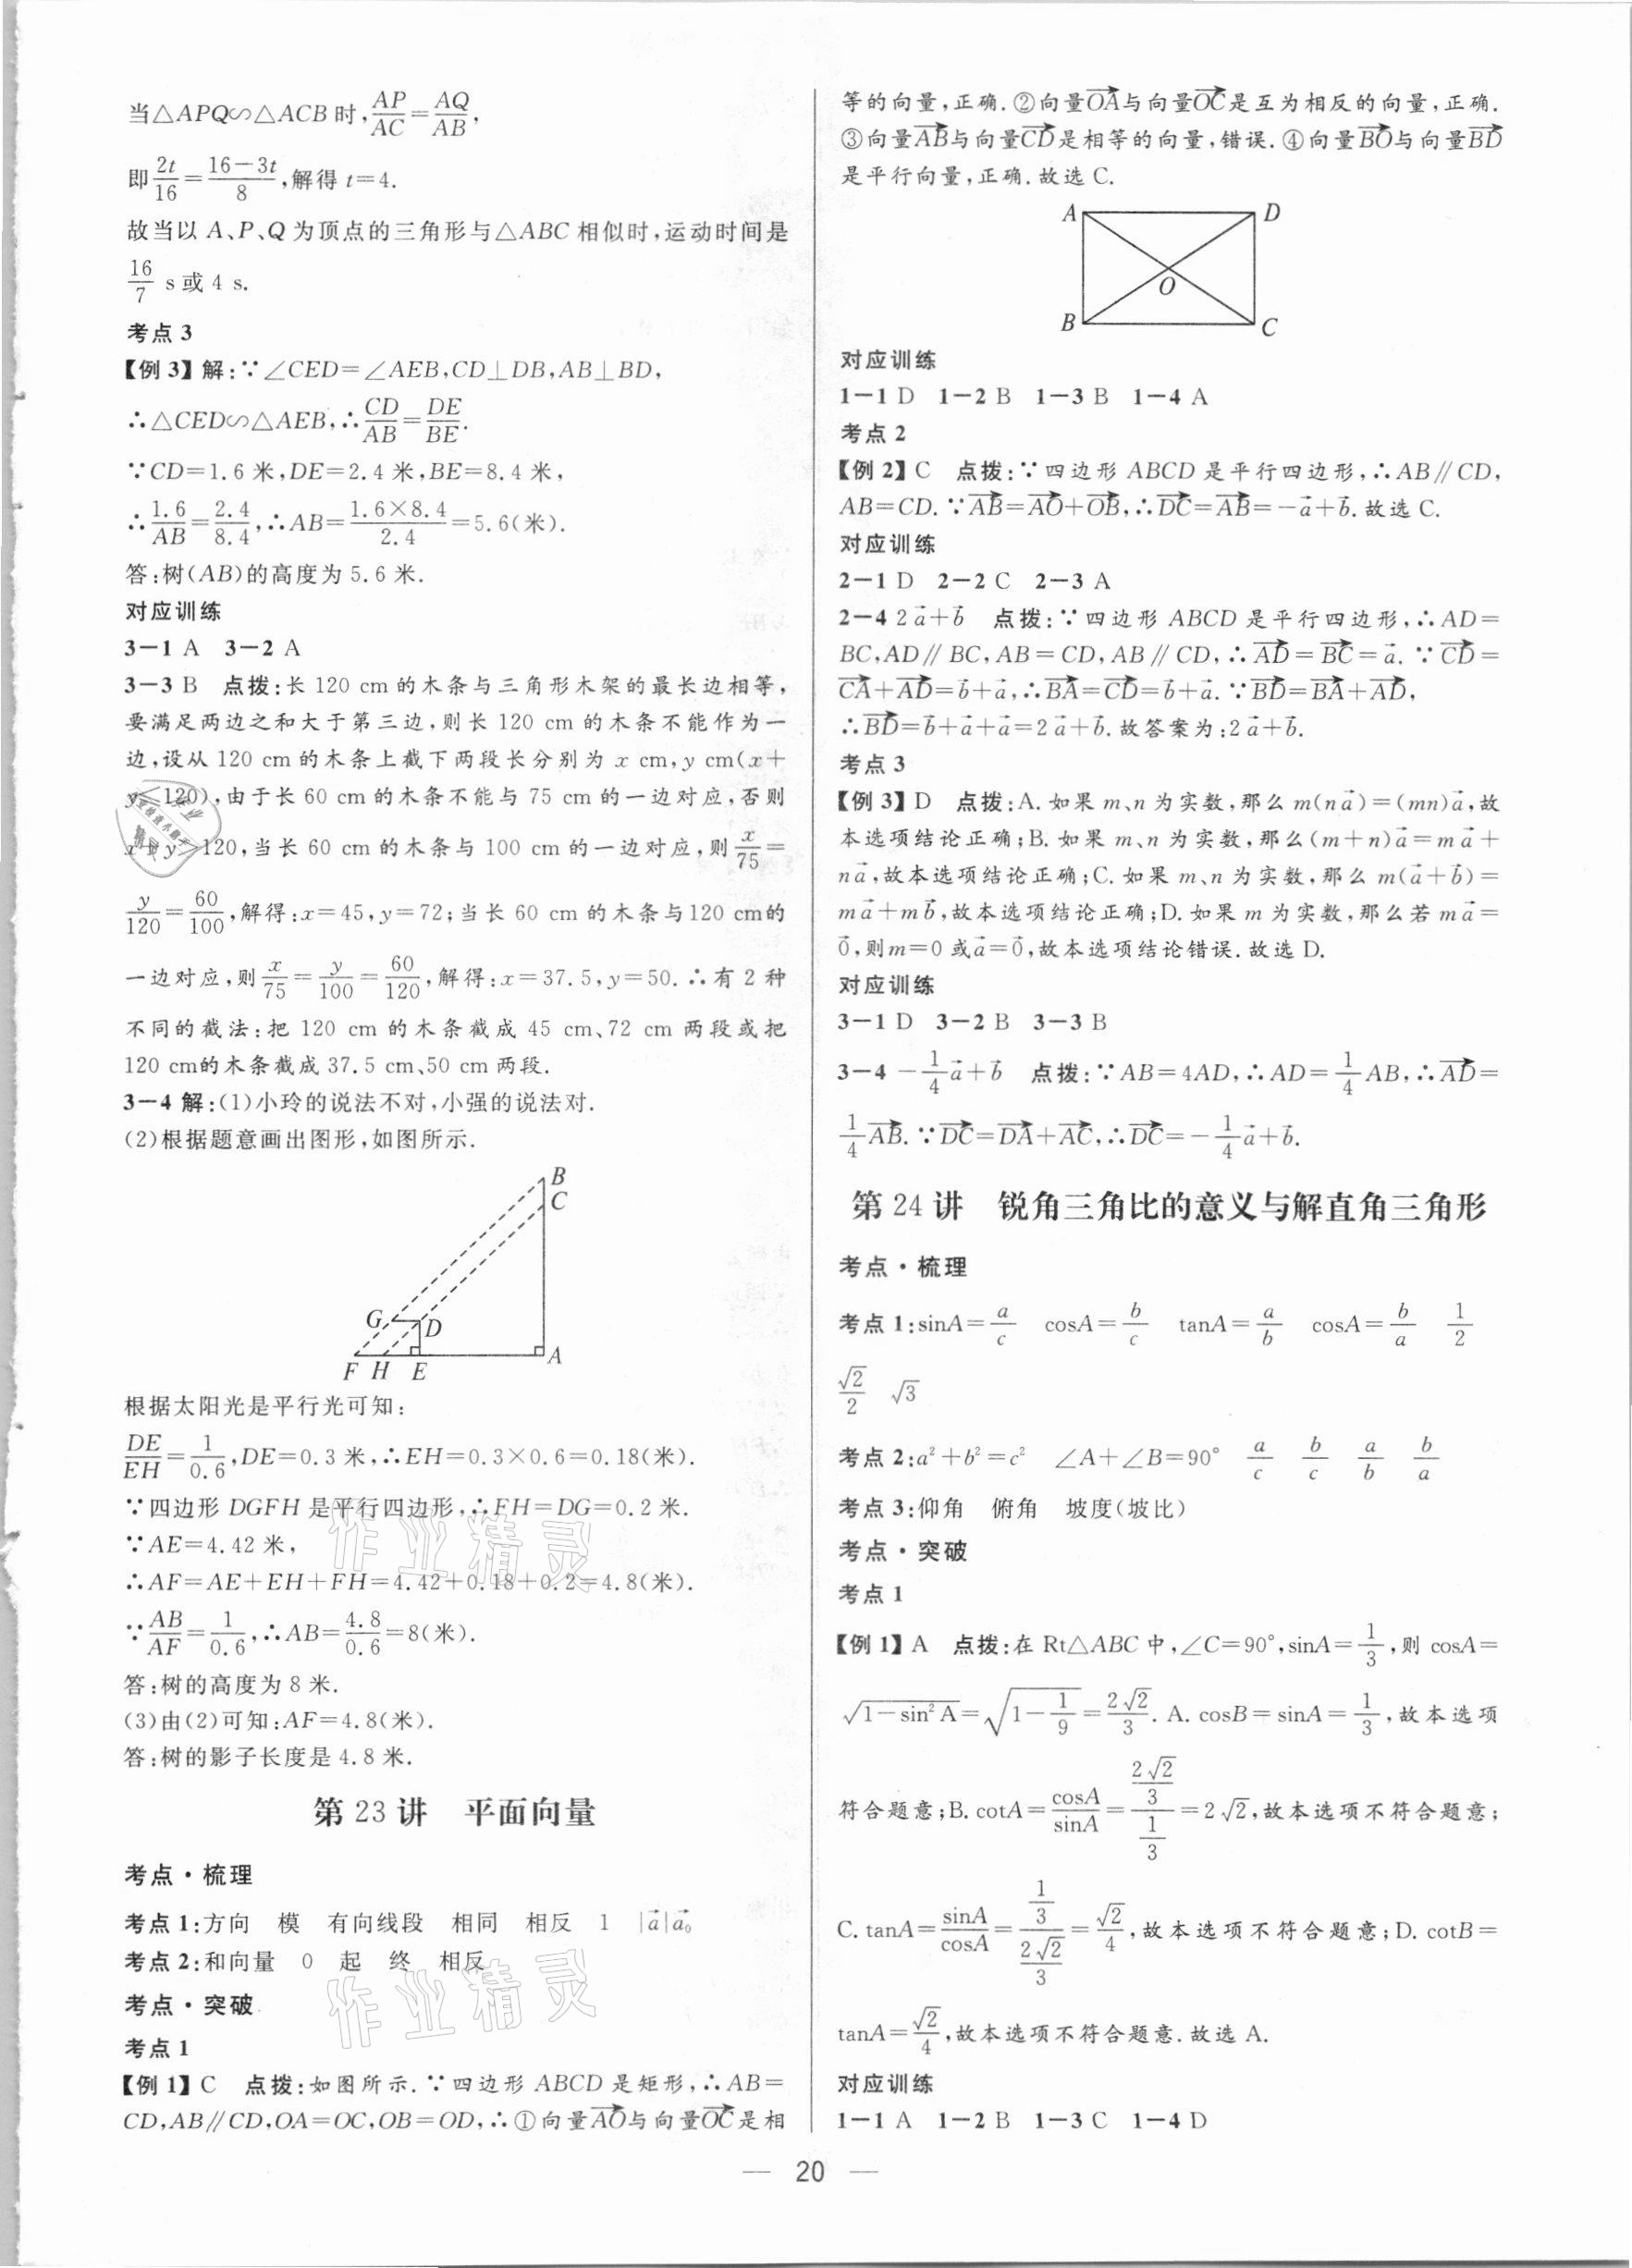 当△APQ∽△ACB时,AP/AC=AQ/AB,
即2t/16=(16-3t)/8,解得t=4.
故当以A、P、Q为顶点的三角形与△ABC相似时,运动时间是
16/7 s或4 s.
考点3
【例3】解:∵∠CED=∠AEB,CD⊥DB,AB⊥BD,
∴△CED∽△AEB,∴CD/AB=DE/BE.
∵CD=1.6米,DE=2.4米,BE=8.4米,
∴1.6/AB=2.4/8.4,∴AB=(1.6×8.4)/2.4=5.6(米).
答:树(AB)的高度为5.6米.
对应训练
3-1 A 3-2 A
3-3 B 点拨:长120 cm的木条与三角形木架的最长边相等,
要满足两边之和大于第三边,则长120 cm的木条不能作为一
边,设从120 cm的木条上截下两段长分别为x cm,y cm(x+
y≤120),由于长60 cm的木条不能与75 cm的一边对应,否则
x+y>120,当长60 cm的木条与100 cm的一边对应,则x/75=
y/120=60/100,解得:x=45,y=72;当长60 cm的木条与120 cm的
一边对应,则x/75=y/100=60/120,解得:x=37.5,y=50.∴有2种
不同的截法:把120 cm的木条截成45 cm、72 cm两段或把
120 cm的木条截成37.5 cm、50 cm两段.
3-4 解:(1)小玲的说法不对,小强的说法对.
(2)根据题意画出图形,如图所示.
B
C
G
D
F H E A
根据太阳光是平行光可知:
DE/EH=1/0.6,DE=0.3米,∴EH=0.3×0.6=0.18(米).
∵四边形DGFH是平行四边形,∴FH=DG=0.2米.
∵AE=4.42米,
∴AF=AE+EH+FH=4.42+0.18+0.2=4.8(米).
∵AB/AF=1/0.6,∴AB=4.8/0.6=8(米).
答:树的高度为8米.
(3)由(2)可知:AF=4.8(米).
答:树的影子长度是4.8米.
第23讲 平面向量
考点·梳理
考点1:方向 模 有向线段 相同 相反 1 |a⃗|a⃗₀
考点2:和向量 0 起 终 相反
考点·突破
考点1
【例1】C 点拨:如图所示.∵四边形ABCD是矩形,∴AB=
CD,AB∥CD,OA=OC,OB=OD,∴①向量AO⃗与向量OC⃗是相
等的向量,正确.②向量OA⃗与向量OC⃗是互为相反的向量,正确.
③向量AB⃗与向量CD⃗是相等的向量,错误.④向量BO⃗与向量BD⃗
是平行向量,正确.故选C.
A D
O
B C
对应训练
1-1 D 1-2 B 1-3 B 1-4 A
考点2
【例2】C 点拨:∵四边形ABCD是平行四边形,∴AB∥CD,
AB=CD.∵AB⃗=AO⃗+OB⃗,∴DC⃗=AB⃗=-a⃗+b⃗.故选C.
对应训练
2-1 D 2-2 C 2-3 A
2-4 2a⃗+b⃗ 点拨:∵四边形ABCD是平行四边形,∴AD=
BC,AD∥BC,AB=CD,AB∥CD,∴AD⃗=BC⃗=a⃗.∵CD⃗=
CA⃗+AD⃗=b⃗+a⃗,∴BA⃗=CD⃗=b⃗+a⃗.∵BD⃗=BA⃗+AD⃗,
∴BD⃗=b⃗+a⃗+a⃗=2a⃗+b⃗.故答案为:2a⃗+b⃗.
考点3
【例3】D 点拨:A.如果m、n为实数,那么m(na⃗)=(mn)a⃗,故
本选项结论正确;B.如果m、n为实数,那么(m+n)a⃗=ma⃗+
na⃗,故本选项结论正确;C.如果m、n为实数,那么m(a⃗+b⃗)=
ma⃗+mb⃗,故本选项结论正确;D.如果m为实数,那么若ma⃗=
0⃗,则m=0或a⃗=0⃗,故本选项结论错误.故选D.
对应训练
3-1 D 3-2 B 3-3 B
3-4 -1/4a⃗+b⃗ 点拨:∵AB=4AD,∴AD=1/4AB,∴AD⃗=
1/4AB⃗.∵DC⃗=DA⃗+AC⃗,∴DC⃗=-1/4a⃗+b⃗.
第24讲 锐角三角比的意义与解直角三角形
考点·梳理
考点1:sinA=a/c cosA=b/c tanA=a/b cosA=b/a 1/2
√2/2 √3
考点2:a²+b²=c² ∠A+∠B=90° a/c b/c a/b b/a
考点3:仰角 俯角 坡度(坡比)
考点·突破
考点1
【例1】A 点拨:在Rt△ABC中,∠C=90°,sinA=1/3,则cosA=
√(1-sin²A)=√(1-1/9)=2√2/3.A.cosB=sinA=1/3,故本选项
符合题意;B.cotA=cosA/sinA=(2√2/3)/(1/3)=2√2,故本选项不符合题意;
C.tanA=sinA/cosA=(1/3)/(2√2/3)=√2/4,故本选项不符合题意;D.cotB=
tanA=√2/4,故本选项不符合题意.故选A.
对应训练
1-1 A 1-2 B 1-3 C 1-4 D
— 20 —
作业精灵
作业精灵